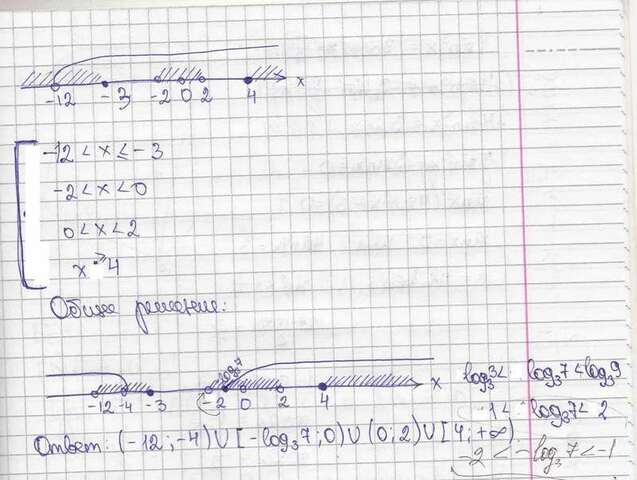 -12 -3 -2 0 2 4 x
-12 < x ≤ -3
-2 < x < 0
0 < x < 2
x ≥ 4
Общее решение:
-log₃7
-12 -4 -3 -2 0 2 4 x
log₃3 < log₃7 < log₃9
1 < log₃7 < 2
-2 < -log₃7 < -1
Ответ: (-12; -4) ∪ [-log₃7; 0) ∪ (0; 2) ∪ [4; +∞)